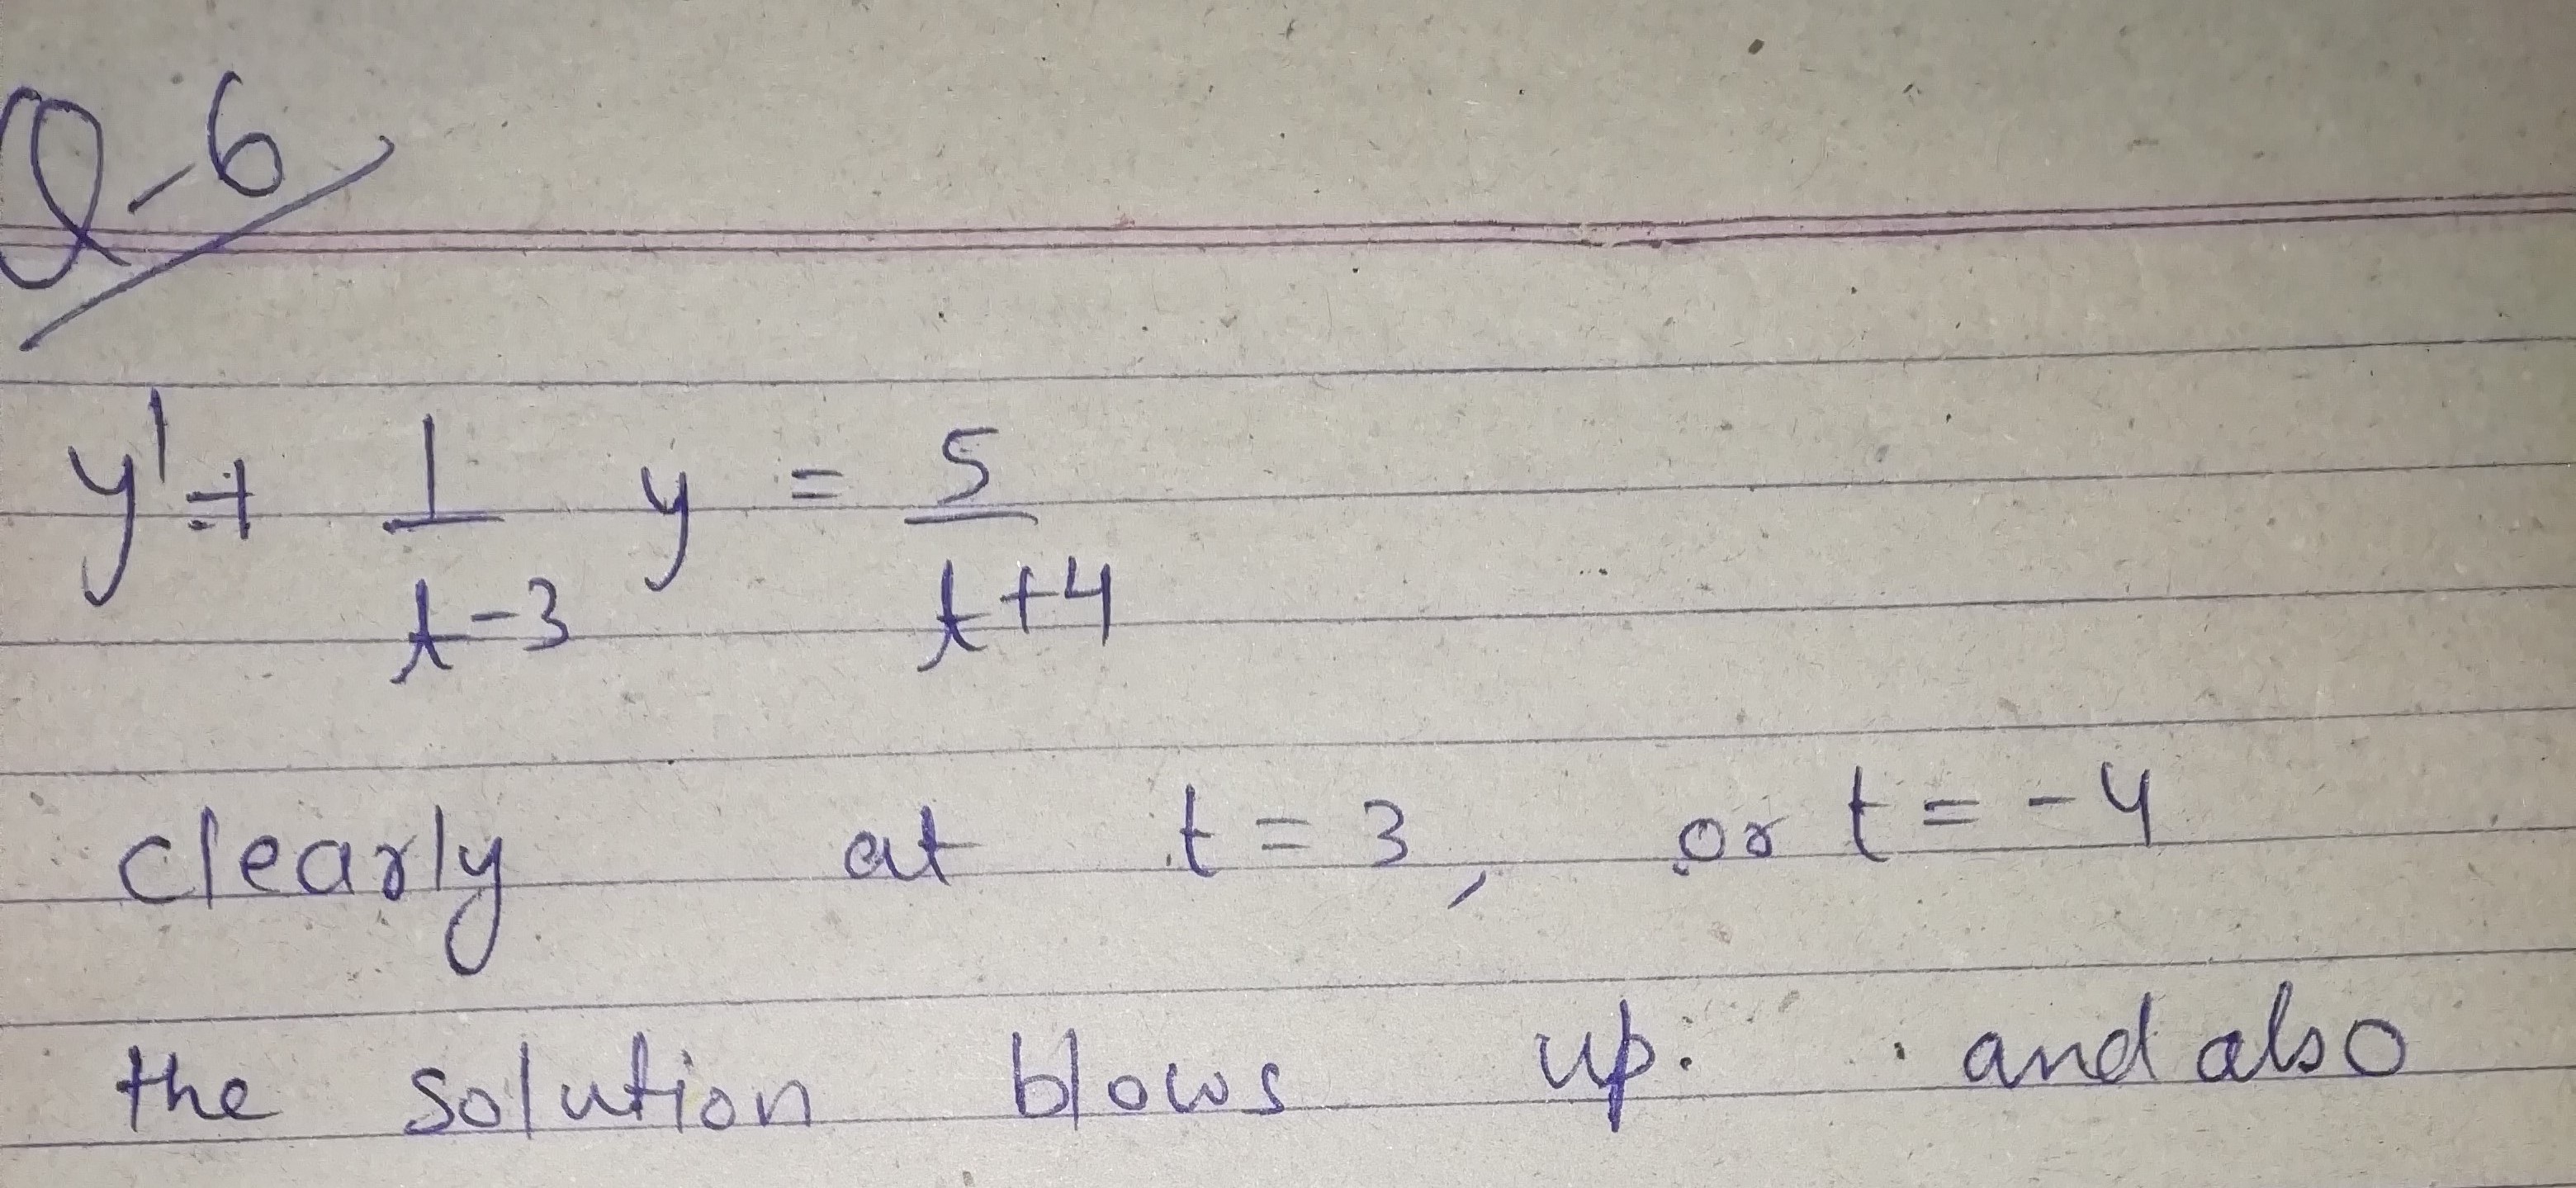 Q-6
y' + 1/(t-3) y = 5/(t+4)
clearly at t = 3, or t = -4
the solution blows up. and also